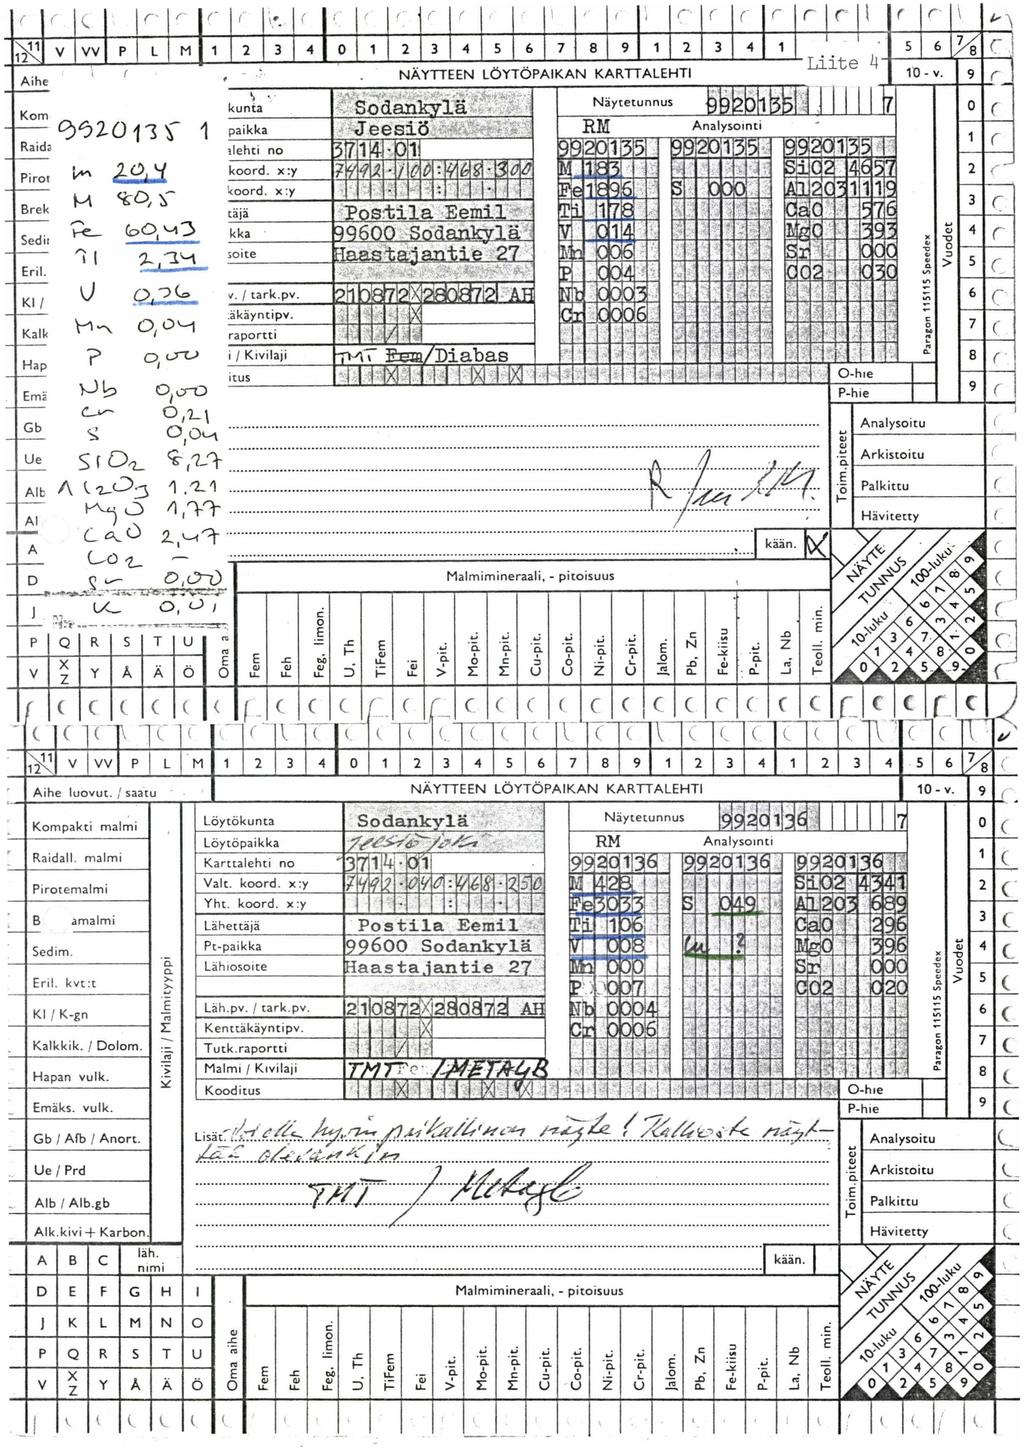 11 12 V VV P L M 1 2 3 4 0 1 2 3 4 5 6 7 8 9 1 2 3 4 1 5 6 7/8
Liite 4
Aihe NÄYTTEEN LÖYTÖPAIKAN KARTTALEHTI 10 - v. 9
Kom
Raida
Pirot
Brek
Sedim
Eril.
Kl /
Kalk
Hap
Emä
Gb
Ue
Alb
Al
A
D
J
9920135 1
m 20,4
M 80,5
Fe 60,43
Ti 2,34
V 0,26
Mn 0,04
P 0,00
Nb 0,00
Cr 0,21
S 0,04
SiO2 8,27
Al2O3 1.21
MgO 1,77
CaO 2,47
CO2 –
Sr 0,00
K 0,01
kunta Sodankylä
paikka Jeesiö
alehti no 3714 01
koord. x:y 7492 100:468 300
koord. x:y
täjä Postila Eemil
kka 99600 Sodankylä
soite Haastajantie 27
v. / tark.pv. 210872 X 280872 AH
äkäyntipv. X
raportti /
i / Kivilaji TMT Fem/Diabas
itus X X X
Näytetunnus 9920135 7
RM Analysointi
9920135 9920135 9920135
M 183 SiO2 4657
Fe1896 S 000 Al2031119
Ti 178 CaO 576
V 014 MgO 393
Mn 006 Sr 000
P 004 CO2 030
Nb 0003
Cr 0006
Paragon 115115 Speedex
Vuodet
0
1
2
3
4
5
6
7
8
9
O-hie
P-hie
Toim.piteet
Analysoitu
Arkistoitu
Palkittu
Hävitetty
kään. X
Malmimineraali, - pitoisuus
P Q R S T U
V X Z Y Å Ä Ö
Oma a
Fem
Feh
Feg, limon.
U, Th
TiFem
Fei
V-pit.
Mo-pit.
Mn-pit.
Cu-pit.
Co-pit.
Ni-pit.
Cr-pit.
Jalom.
Pb, Zn
Fe-kiisu
P-pit.
La, Nb
Teoll. min.
NÄYTE TUNNUS
100-luku 9
6 7 8 5
10-luku 3 6 3 4 2
1 4 7 8 1 0
0 2 5 9
11 12 V VV P L M 1 2 3 4 0 1 2 3 4 5 6 7 8 9 1 2 3 4 1 2 3 4 5 6 7/8
Aihe luovut. / saatu NÄYTTEEN LÖYTÖPAIKAN KARTTALEHTI 10 - v. 9
Kompakti malmi
Raidall. malmi
Pirotemalmi
B amalmi
Sedim.
Eril. kvt:t
Kl / K-gn
Kalkkik. / Dolom.
Hapan vulk.
Emäks. vulk.
Gb / Afb / Anort.
Ue / Prd
Alb / Alb.gb
Alk.kivi + Karbon.
Kivilaji / Malmityyppi
Löytökunta Sodankylä
Löytöpaikka Jeesiöjoki
Karttalehti no 3714 01
Valt. koord. x:y 7492 040:468 250
Yht. koord. x:y
Lähettäjä Postila Eemil
Pt-paikka 99600 Sodankylä
Lähiosoite Haastajantie 27
Läh.pv. / tark.pv. 210872 X 280872 AH
Kenttäkäyntipv. X
Tutk.raportti /
Malmi / Kivilaji TMT /METAGB
Kooditus X X X
Näytetunnus 9920136 7
RM Analysointi
9920136 9920136 9920136
M 428 SiO2 4341
Fe3033 S 049 Al203 689
Ti 106 CaO 296
V 008 Cu ? MgO 396
Mn 000 Sr 000
P 007 CO2 020
Nb 0004
Cr 0006
Paragon 115115 Speedex
Vuodet
0
1
2
3
4
5
6
7
8
9
O-hie
P-hie
Lisät. hyvin paikallinen näyte! Kalliosta näyt-
tää olevankin
TMT / Metagb
Toim.piteet
Analysoitu
Arkistoitu
Palkittu
Hävitetty
kään.
A B C läh. nimi
D E F G H I
J K L M N O
P Q R S T U
V X Z Y Å Ä Ö
Malmimineraali, - pitoisuus
Oma aihe
Fem
Feh
Feg, limon.
U, Th
TiFem
Fei
V-pit.
Mo-pit.
Mn-pit.
Cu-pit.
Co-pit.
Ni-pit.
Cr-pit.
Jalom.
Pb, Zn
Fe-kiisu
P-pit.
La, Nb
Teoll. min.
NÄYTE TUNNUS
100-luku 9
6 7 8 5
10-luku 3 6 3 4 2
1 4 7 8 1 0
0 2 5 9